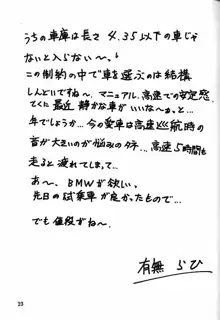 うちの車庫は長さ4.35以下の車じゃ
ないと入らない〜。
この制約の中で車を選ぶのは結構
しんどいですね〜。マニュアル、高速での安定感、
てくに最近静かな車がいいな〜ぁっと…
年でしょうか…今の愛車は高速巡航時の
音が大きいのが悩みのタネ…。高速5時間も
走ると疲れてしまって…
あ〜、BMWが欲しい。
先日の試乗車が良かったもので…
でも値段がね〜
有無らひ
23